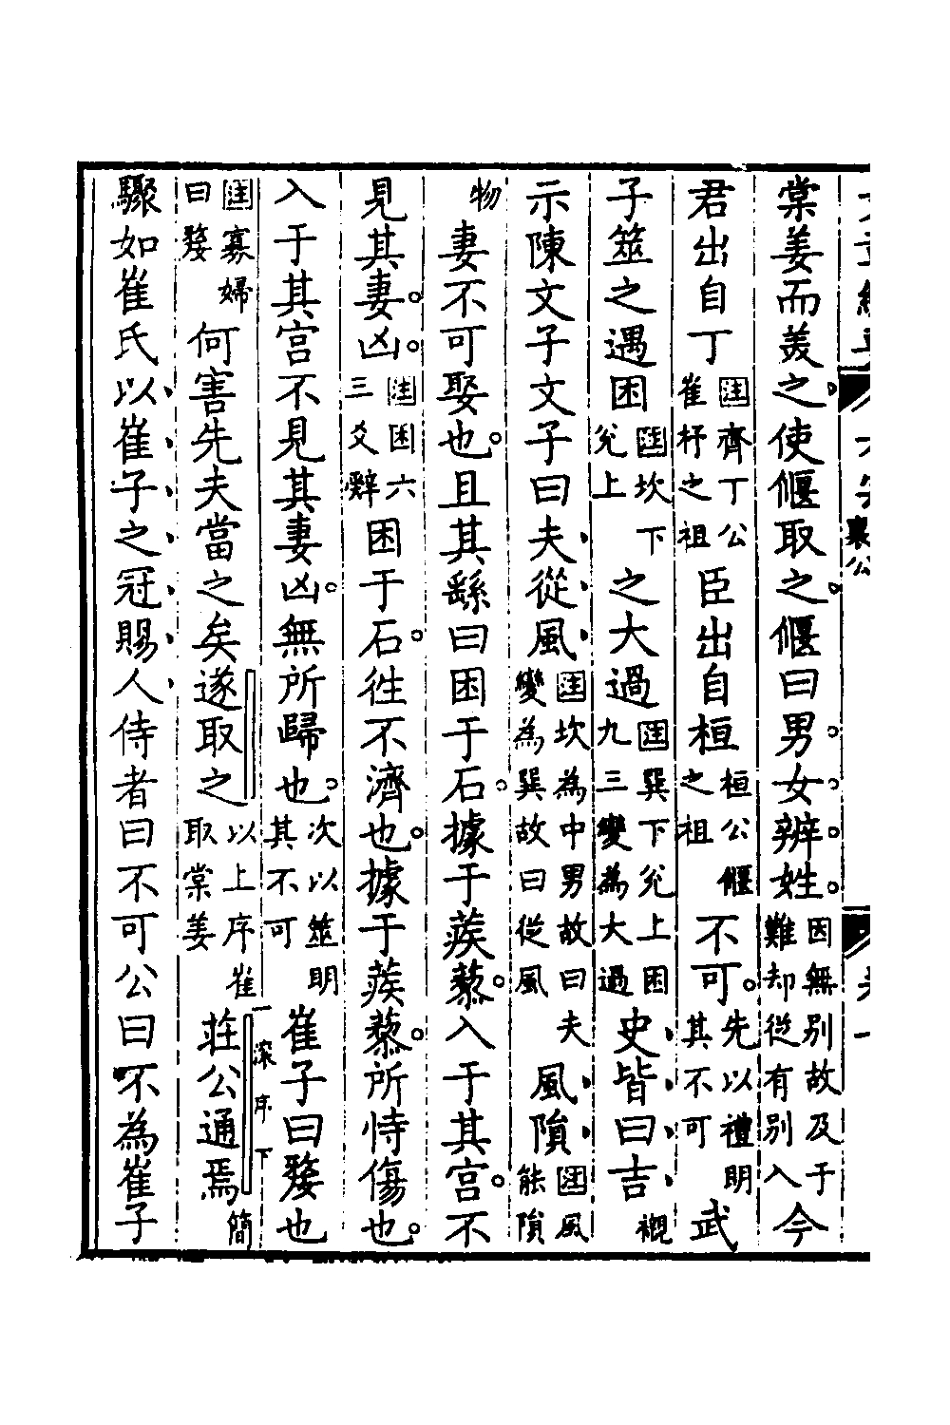 襄公
棠姜而美之使偃取之偃曰男女辨姓因無別故及于難却從有別入今
君出自丁注齊丁公崔杼之祖臣出自桓桓公偃之祖不可先以禮明其不可武
子筮之遇困注坎下兌上之大過注巽下兌上困九三變為大過史皆曰吉襯
示陳文子文子曰夫從風注坎為中男故曰夫變為巽故曰從風風隕注風能隕
物妻不可娶也且其繇曰困于石據于蒺藜入于其宫不
見其妻凶注困六三爻辭困于石往不濟也據于蒺藜所恃傷也
入于其宫不見其妻凶無所歸也次以筮明其不可崔子曰嫠也
深序下
注寡婦曰嫠何害先夫當之矣遂取之以上序崔取棠姜莊公通焉簡
驟如崔氏以崔子之冠賜人侍者曰不可公曰不為崔子